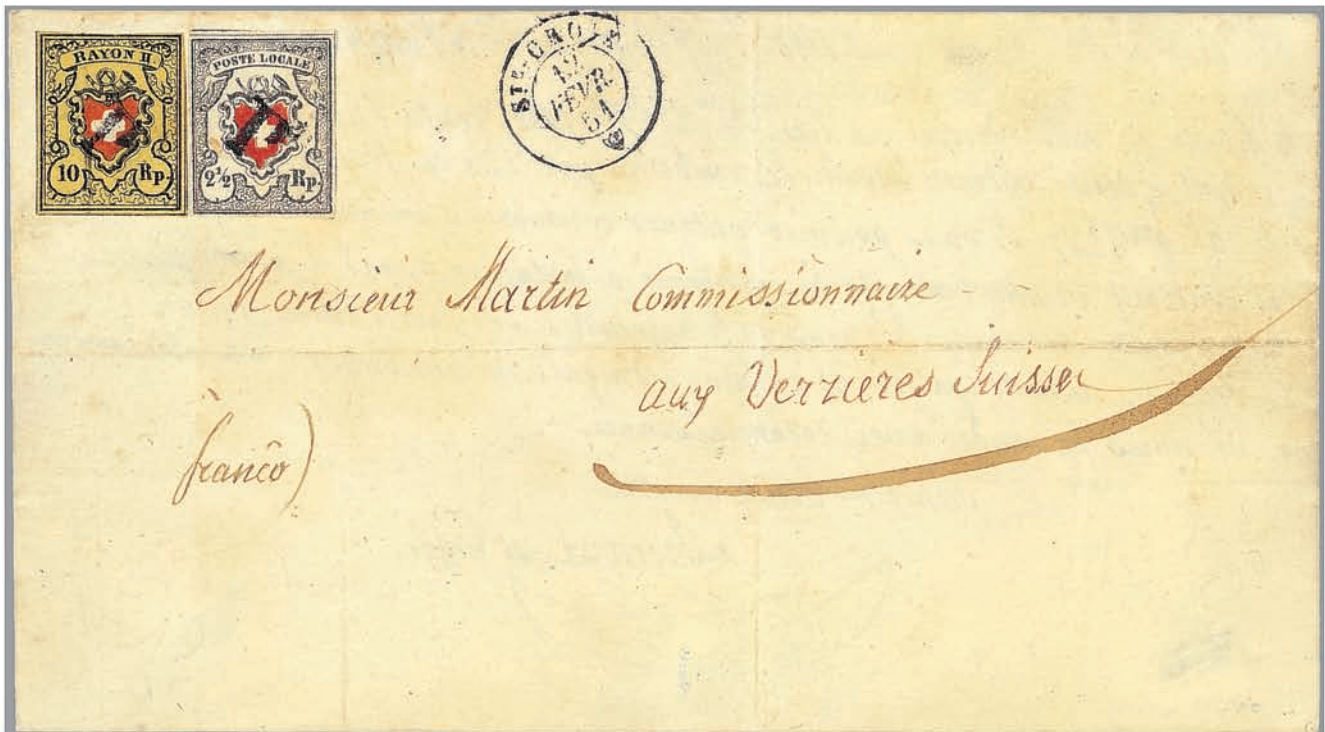 RAYON II
10 Rp.
POSTE LOCALE
2½ Rp.
STE-CROIX
12
FEVR
51
Monsieur Martin Commissionnaire
aux Verrieres Suisses
franco)